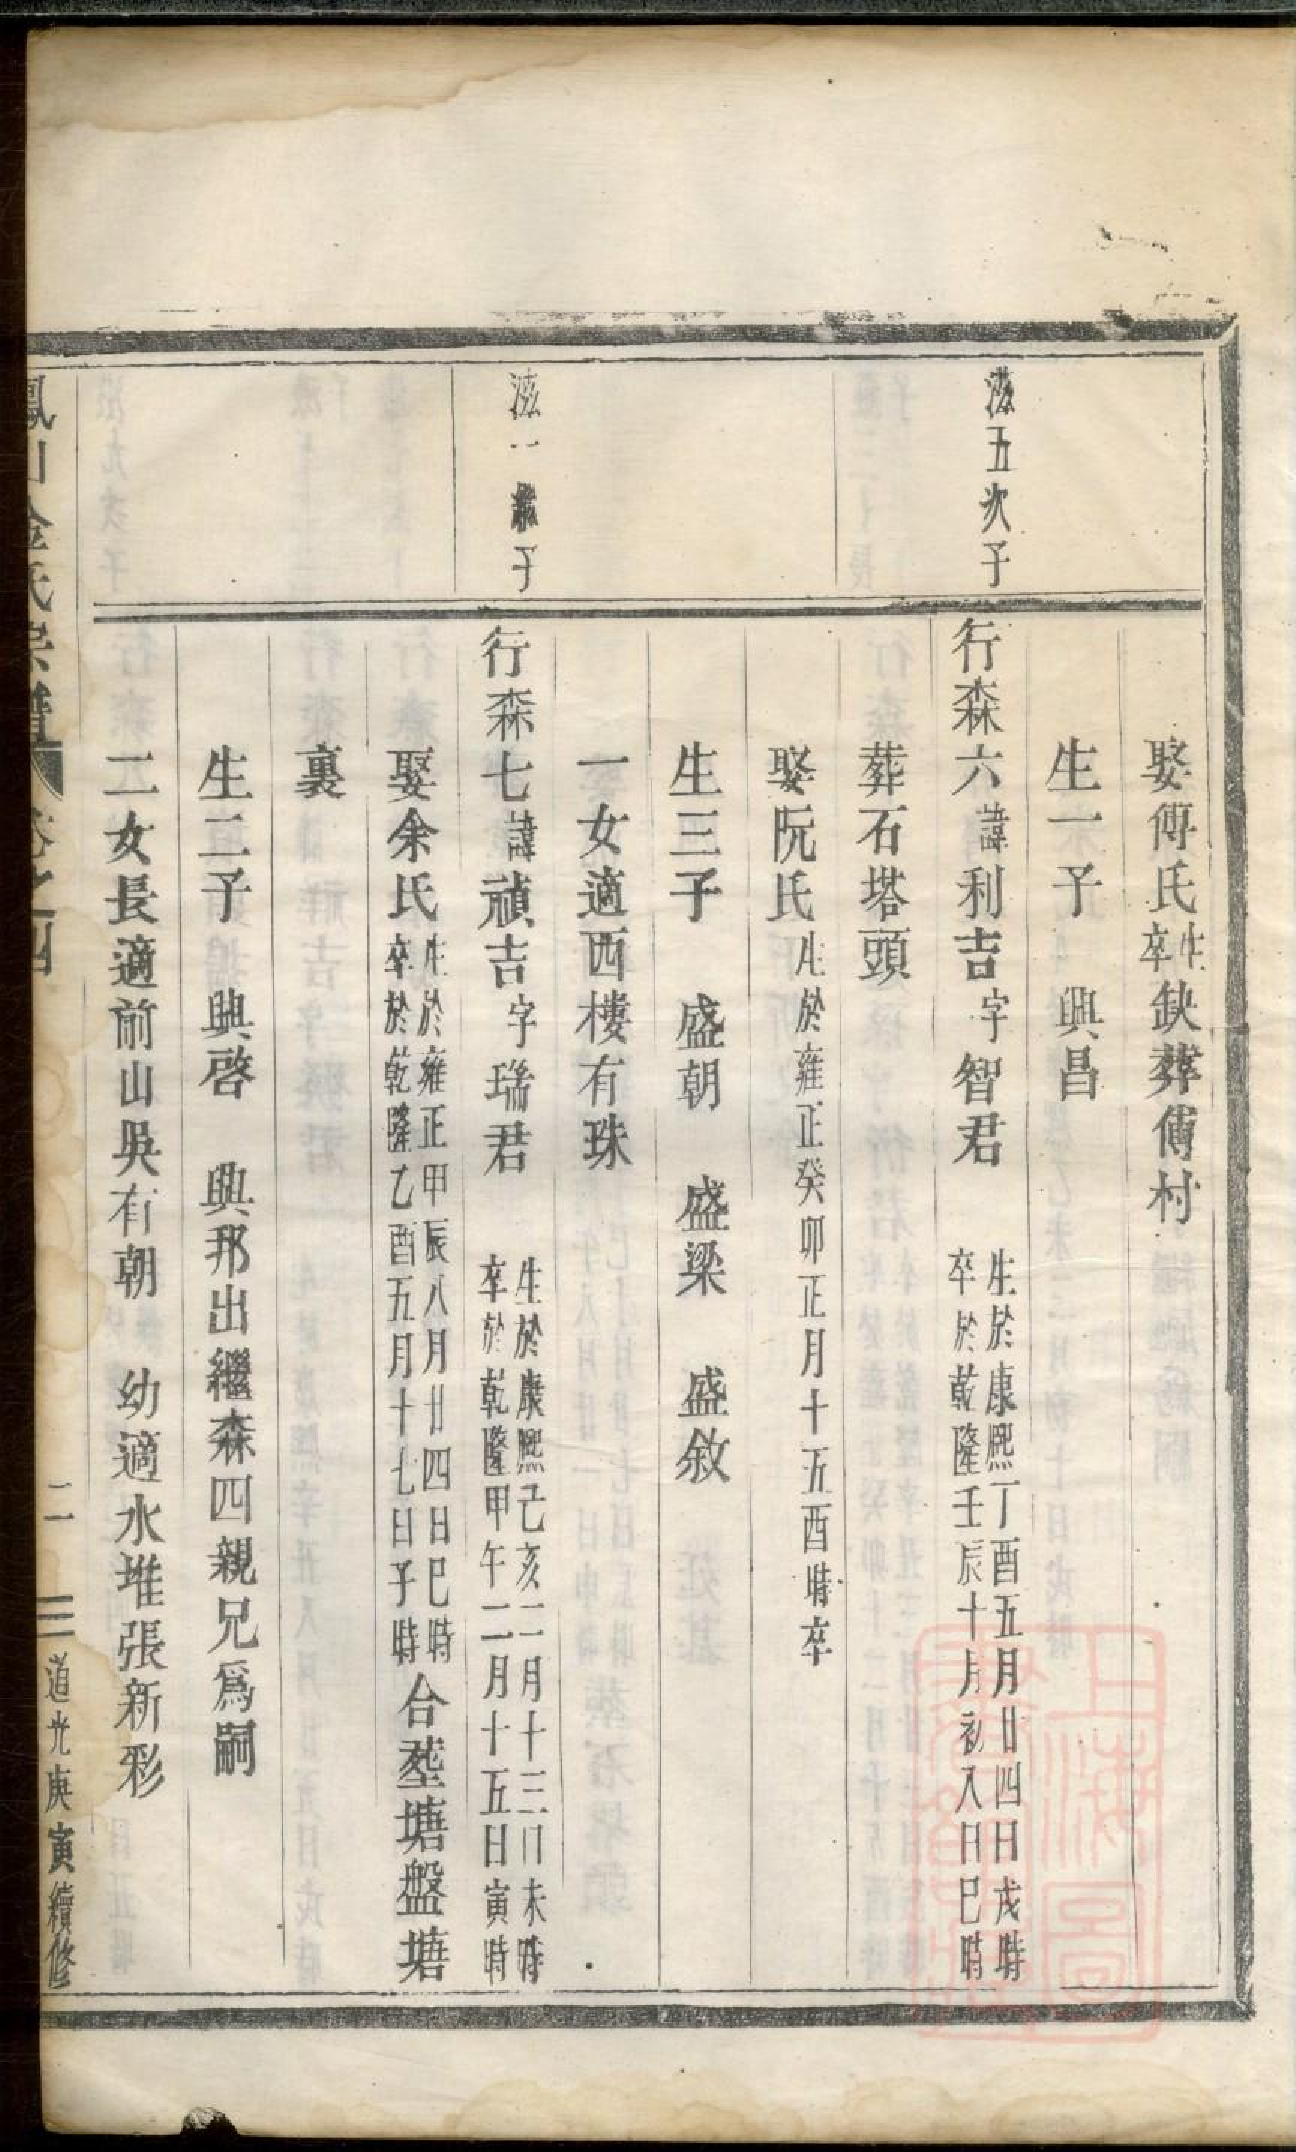 娶傅氏生卒缺葬傅村
生一子　興昌
滋五次子
行森六諱利吉字智君　生於康熙丁酉五月廿四日戌時
卒於乾隆壬辰十月初八日巳時
葬石塔頭
娶阮氏生於雍正癸卯正月十五酉時卒
生三子　盛朝　盛梁　盛敘
一女適西樓有珠
滋一子
行森七諱禎吉字瑞君　生於康熙己亥二月十三日未時
卒於乾隆甲午二月十五日寅時
娶余氏生於雍正甲辰八月廿四日巳時
卒於乾隆乙酉五月十七日子時合塟塘盤塘
裏
生二子　興啓　興邦出繼森四親兄爲嗣
二女長適前山吳有朝　幼適水堆張新彩
鳳山金氏宗譜　卷之四　二　道光庚寅續修
上海圖書館藏